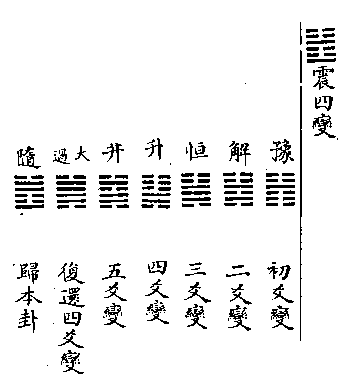 震四變
豫
初爻變
解
二爻變
恒
三爻變
升
四爻變
井
五爻變
大過
復還四爻變
隨
歸本卦